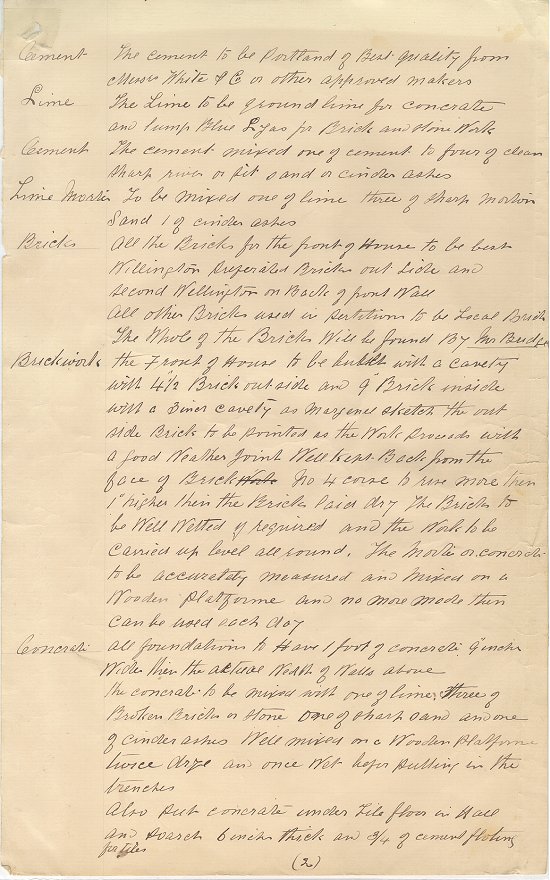 Cement The cement to be Portland of Best quality from
Messrs White & C or other approved makers
Lime The Lime to be ground lime for concrate
and lump Blue Lyas for Brick and stone Work
Cement The cement mixed one of cement to four of clean
sharp river or pit sand or cinder ashes
Lime Morter To be mixed one of lime three of sharp
Sand 1 of cinder ashes
Bricks All the Bricks for the front of House to be best
Willington Bricks out side and
second Wellington on Back of front Wall
All other Bricks used in pertetions to be Local Brick
The Whole of the Bricks Will be found By Mr
Brickwork the Front of House to be built with a cavety
with 4½ Brick out side and 9 Brick inside
with a 3 iner cavety as sketch the out
side Brick to be pointed as the Work proceads with
a good Weather Joint Well Kept Back from the
face of Brick Work No 4 corse to rise more then
1" higher then the Bricks laid dry The Bricks to
be Well Wetted if required and the Work to be
carried up level all round. The Morter or concrate
to be accurately measured and mixed on a
Wooden Platforme and no more made then
can be used each day
Concrate all foundations to Have 1 foot of concrate 9 inches
Wider then the actual Wedth of Walls above
the concrate to be mixed with one of lime, three of
Broken Bricks or stone one of sharp sand and one
of cinder ashes Well mixed on a Wooden platforme
twice drye and once Wet befor putting in the
trenches
Also put concrate under Tile floor in Hall
and poarch 6 inches thick and 3/4 of cement floting
for tiles
(2)